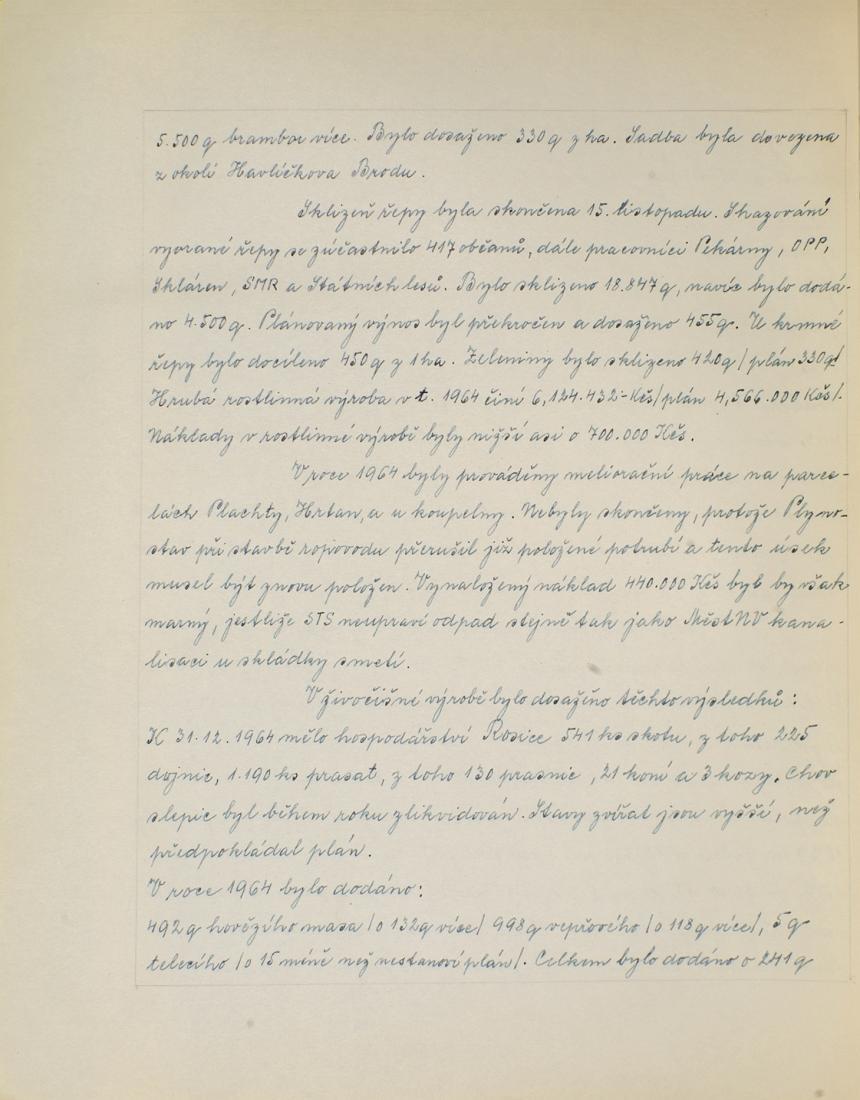 5.500 q brambor více. Bylo dosaženo 330 q z ha. Sadba byla dovezena
z okolí Havlíčkova Brodu.
Sklizeň řepy byla skončena 15. listopadu. Shazování
vyorané řepy se zúčastnilo 417 občanů, dále pracovníci Pekárny, OPP,
Skláren, SMR a Státních lesů. Bylo sklizeno 18.847 q, navíc bylo dodá-
no 4.500 q. Plánovaný výnos byl překročen a dosaženo 455 q. U krmné
řepy bylo docíleno 450 q z 1 ha. Zeleniny bylo sklizeno 420 q /plán 330 q/
Hrubá rostlinná výroba v t. 1964 činí 6,124.432·- Kčs/plán 4,566.000 Kčs/.
Náklady v rostlinné výrobě byly nižší asi o 700.000 Kčs.
V roce 1964 byly prováděny meliorační práce na parce-
lách Plachty, Hrtan, a u koupelny. Nebyly skončeny, protože Plyno-
stav při stavbě ropovodu přerušil již položené potrubí a tento úsek
musel být znovu položen. Vynaložený náklad 440.000 Kčs byl by však
marný, jestliže STS neupraví odpad stejně tak jako MěstNV kana-
lisaci u skládky smetí.
V živočišné výrobě bylo dosaženo těchto výsledků:
K 31.12.1964 mělo hospodářství Rosice 541 ks skotu, z toho 225
dojnic, 1.190 ks prasat, z toho 130 prasnic, 21 koní a 3 kozy. Chov
slepic byl během roku zlikvidován. Stavy zvířat jsou vyšší, než
předpokládal plán.
V roce 1964 bylo dodáno:
492 q hovězího masa /o 132 q více/ 998 q vepřového /o 118 q více/, 5 q
telecího /o 15 méně než nestanoví plán/. Celkem bylo dodáno o 241 q